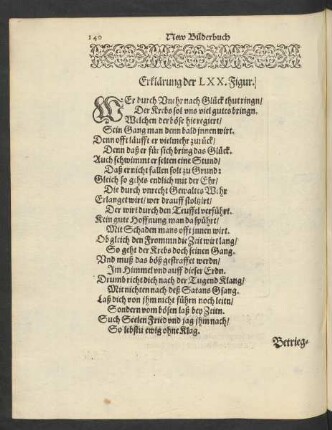 140 New Bilderbuch
Erklärung der LXX. Figur.
WEr durch Vnruh nach Glück thut ringn/
Der Krebs sol vns viel guts bringn.
Welchen der böse hie regiert/
Sein Gang man denn bald innen wirt.
Denn offt läufft er vielmehr zurück/
Denn daß er für sich bring das Glück.
Auch schwimmt er selten eine Stund/
Daß er nicht fallen solt zu Grund:
Gleich so gehts endlich mit der Ehr/
Die durch vnrecht Gewaltes Wehr
Erlanget wirt/ wer drauff stolzirt/
Der wirt durch den Teuffel verführt.
Kein gute Hoffnung man da spührt/
Mit Schaden mans offt innen wirt.
Ob gleich den Frommn die Zeit wirt lang/
So geht der Krebs doch seinen Gang.
Vnd muß das böß gestraffet werdn/
Im Himmel vnd auff dieser Erdn.
Drumb richt dich nach der Tugend Klang/
Mit nichten nach deß Satans Gsang.
Laß dich von ihm nicht führn noch leitn/
Sondern vom bösen laß bey Zeitn.
Such Seelen Fried vnd jag ihm nach/
So lebstu ewig ohne Klag.
Betrieg-